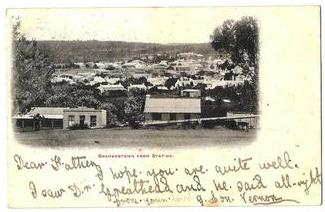 GRAHAMSTOWN FROM STATION.
Dear Father I hope you are quite well.
I saw Dr Greathead and he said all-right
from your son Vernon